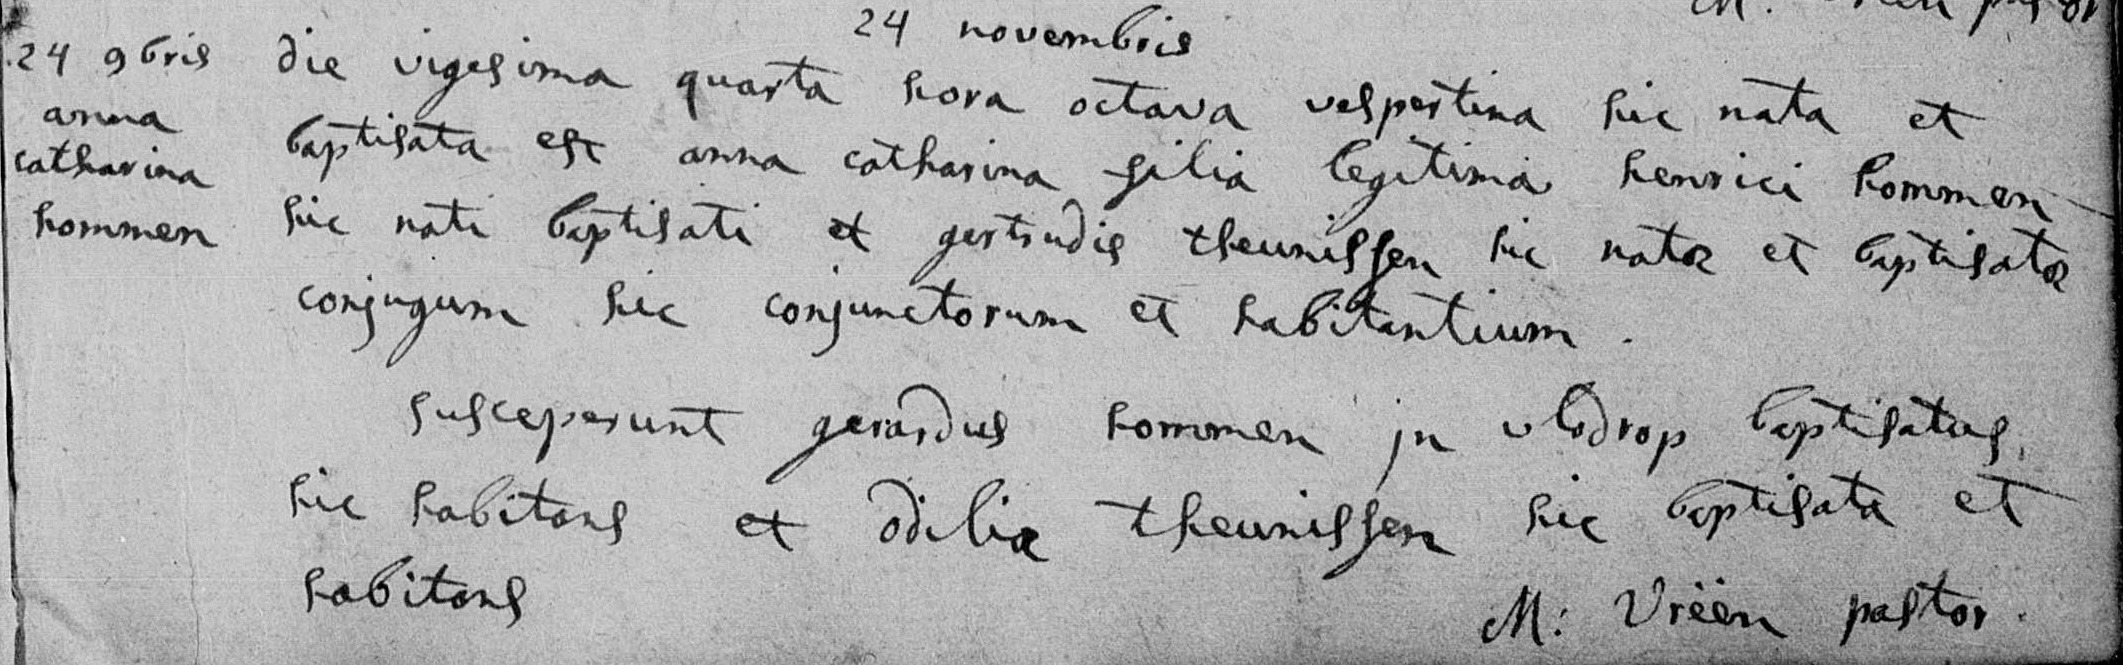 24 novembris
24 9bris
anna
catharina
hommen
die vigesima quarta hora octava vespertina hic nata et
baptisata est anna catharina filia legitima henrici hommen
hic nati baptisati et gertrudis theunissen hic natæ et baptisatæ
conjugum hic conjunctorum et habitantium.
susceperunt gerardus hommen jn vlodrop baptisatus,
hic habitans et odilia theunissen hic baptisata et
habitans
M: Vrëen pastor.